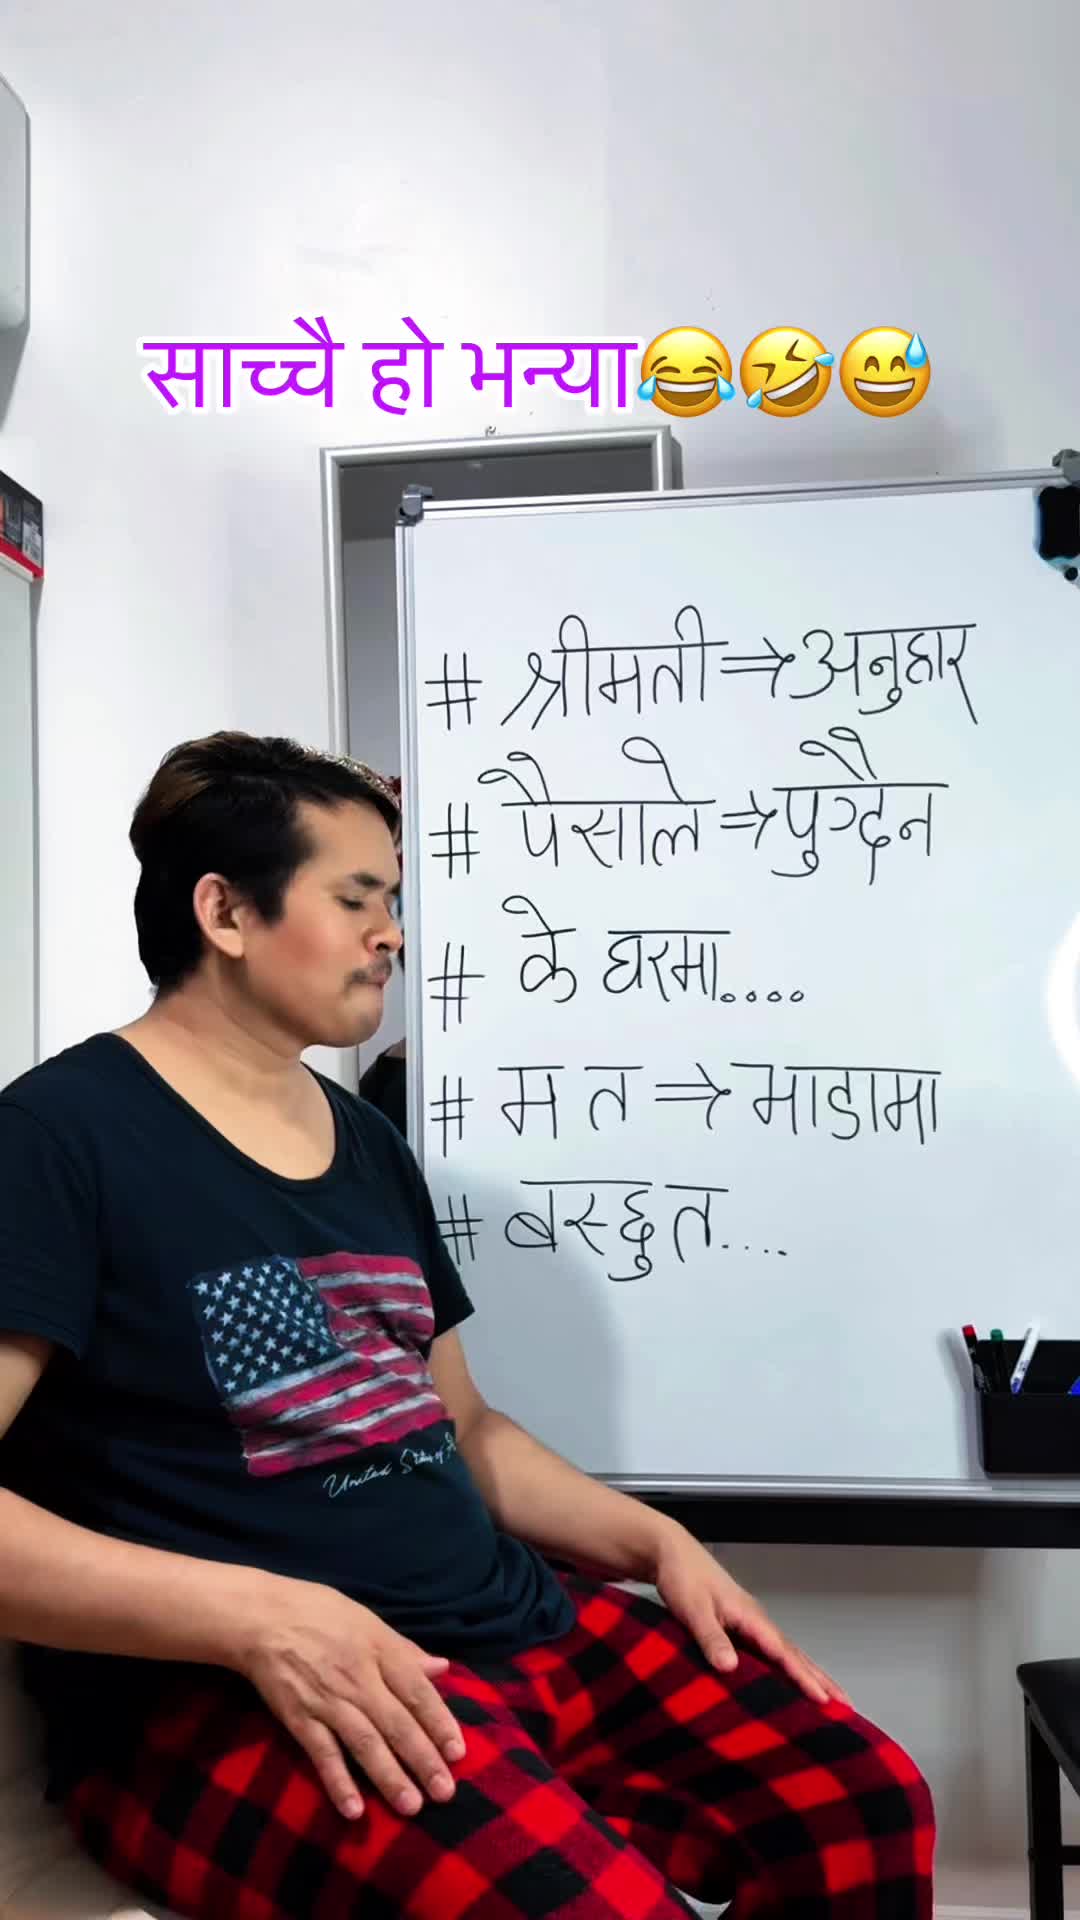 साच्चै हो भन्या😂🤣😅
# श्रीमती ⇒ अनुहार
# पैसाले ⇒ पुग्दैन
# के घरमा....
# म त ⇒ माडामा
# बस्छु त....
United States of